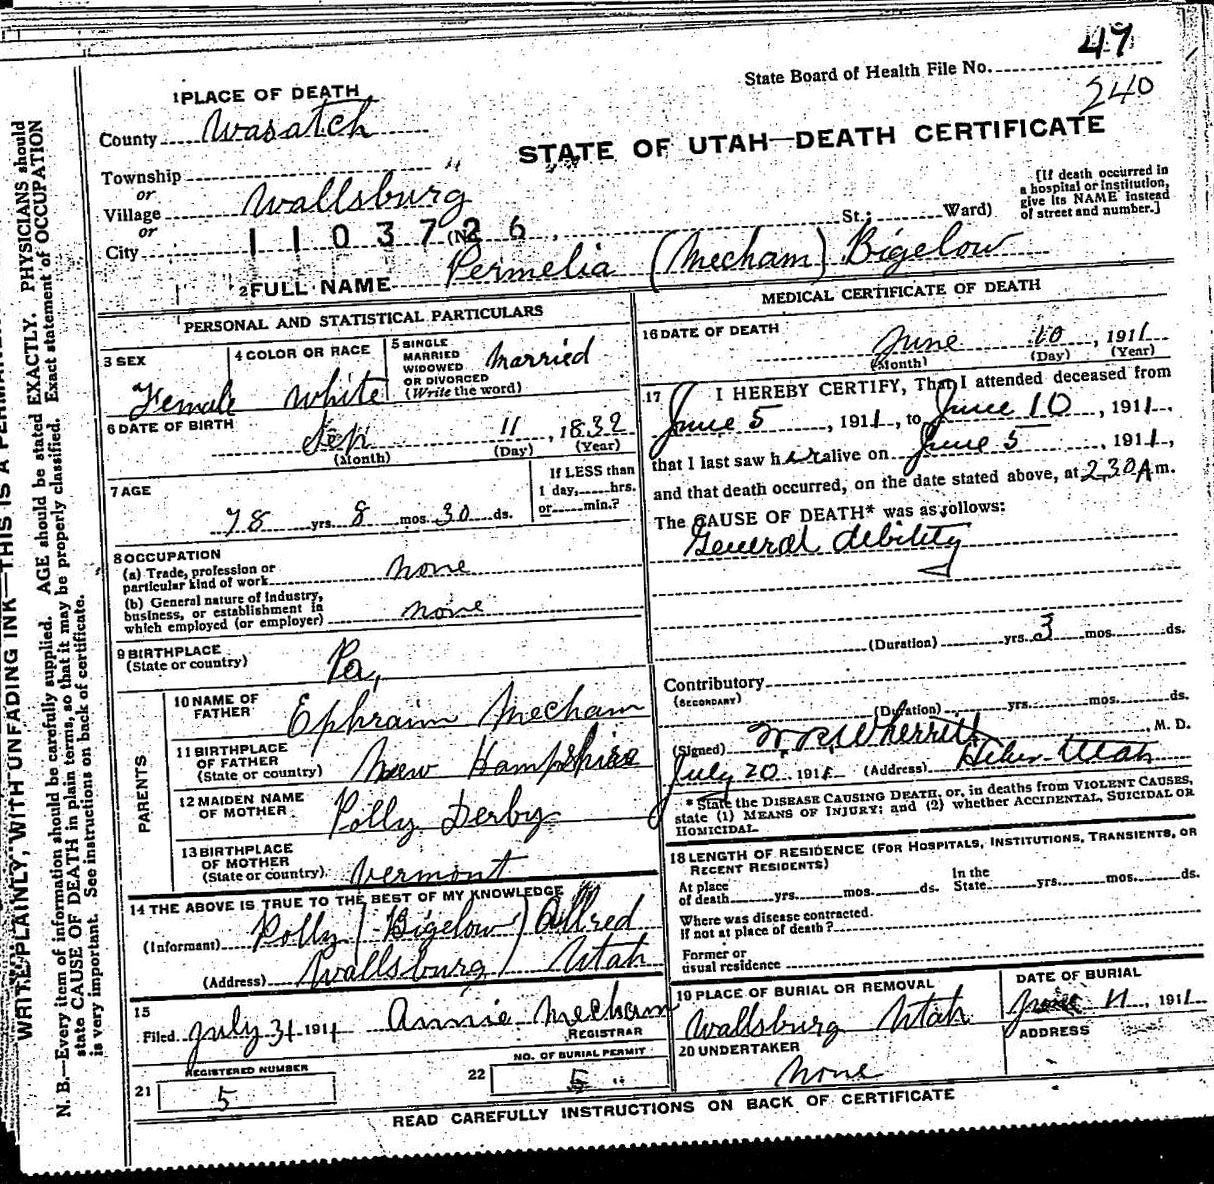 47
State Board of Health File No.
240
1 PLACE OF DEATH
County Wasatch
STATE OF UTAH—DEATH CERTIFICATE
Township
or
Village Wallsburg
or
City
1 1 0 3 7 2 6
(No. St.; Ward)
[If death occurred in
a hospital or institution,
give its NAME instead
of street and number.]
2 FULL NAME Permelia (Mecham) Bigelow
PERSONAL AND STATISTICAL PARTICULARS
3 SEX
Female
4 COLOR OR RACE
White
5 SINGLE
MARRIED
WIDOWED
OR DIVORCED
(Write the word)
Married
6 DATE OF BIRTH
Sep 11, 1832
(Month) (Day) (Year)
7 AGE
78 yrs. 8 mos. 30 ds.
If LESS than
1 day, hrs.
or min.?
8 OCCUPATION
(a) Trade, profession or
particular kind of work none
(b) General nature of industry,
business, or establishment in
which employed (or employer) none
9 BIRTHPLACE
(State or country) Pa,
PARENTS
10 NAME OF
FATHER Ephraim Mecham
11 BIRTHPLACE
OF FATHER
(State or country) New Hampshire
12 MAIDEN NAME
OF MOTHER Polly Derby
13 BIRTHPLACE
OF MOTHER
(State or country) Vermont
14 THE ABOVE IS TRUE TO THE BEST OF MY KNOWLEDGE
(Informant) Polly (Bigelow) Allred
(Address) Wallsburg Utah
15
Filed July 31 1911 Annie Mecham
REGISTRAR
21 REGISTERED NUMBER
5
22 NO. OF BURIAL PERMIT
5
MEDICAL CERTIFICATE OF DEATH
16 DATE OF DEATH
June 10, 1911
(Month) (Day) (Year)
17 I HEREBY CERTIFY, That I attended deceased from
June 5, 1911, to June 10, 1911,
that I last saw her alive on June 5, 1911,
and that death occurred, on the date stated above, at 2.30 A m.
The CAUSE OF DEATH* was as follows:
General debility
(Duration) yrs. 3 mos. ds.
Contributory
(SECONDARY)
(Duration) yrs. mos. ds.
(Signed) W. R. Wherritt, M. D.
July 20 1911 (Address) Heber Utah
* State the DISEASE CAUSING DEATH, or, in deaths from VIOLENT CAUSES,
state (1) MEANS OF INJURY; and (2) whether ACCIDENTAL, SUICIDAL OR
HOMICIDAL.
18 LENGTH OF RESIDENCE (FOR HOSPITALS, INSTITUTIONS, TRANSIENTS, OR
RECENT RESIDENTS)
At place
of death yrs. mos. ds.
In the
State yrs. mos. ds.
Where was disease contracted.
If not at place of death?
Former or
usual residence
19 PLACE OF BURIAL OR REMOVAL
Wallsburg Utah
DATE OF BURIAL
June 11, 1911
20 UNDERTAKER
None
ADDRESS
READ CAREFULLY INSTRUCTIONS ON BACK OF CERTIFICATE
WRITE PLAINLY, WITH UNFADING INK—THIS IS A
N. B.—Every item of information should be carefully supplied. AGE should be stated EXACTLY. PHYSICIANS should
state CAUSE OF DEATH in plain terms, so that it may be properly classified. Exact statement of OCCUPATION
is very important. See instructions on back of certificate.